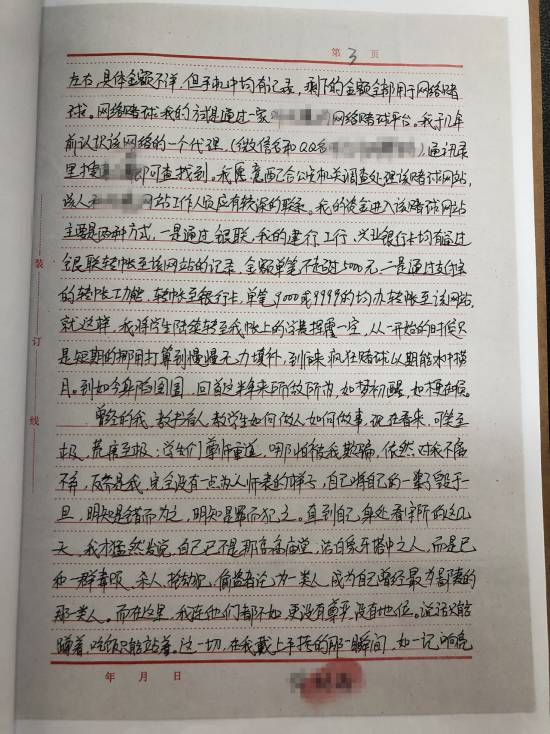 第3页
左右,具体金额不详,但手机中均有记录,剩下的金额全都用于网络赌
球。网络赌球我的方式是通过一家网络赌球平台。我于几年
前认识该网络的一个代理,(微信名和QQ名)通讯录
里搜即可查找到。我愿意配合公安机关调查处理该赌球网站,
该人和网站工作人员应有较深的联系。我的资金进入该赌球网站
主要是两种方式,一是通过银联,我的建行,工行,兴业银行卡均有通过
银联转帐至该网站的记录,金额单笔不超过5000元,二是通过支付宝
的转帐功能,转帐至银行卡,单笔9000或9999的均为转帐至该网站。
就这样,我将学生陆续转至我帐上的学费挥霍一空,从一开始的时候只
是短期的挪用打算到慢慢无力填补,到后来疯狂赌球以期能水中捞
月。到如今身陷囹圄,回首这半年来所做所为,如梦初醒,如梗在喉。
曾经的我,教书育人,教学生如何做人如何做事,现在看来,可笑至
极,荒唐至极;学生们尊师重道,哪怕被我欺骗,依然对我不离
不弃,反倒是我,完全没有一点为人师表的样子,自己将自己的一辈子毁于一
旦,明知是错而为之,明知是罪而犯之。直到自己身处看守所的这几
天,我才猛然发觉,自己已不是那高高庙堂,洁白象牙塔中之人,而是已
和一群毒贩、杀人、抢劫犯、偷盗者沦为一类人,成为自己曾经最为鄙夷的
那一类人。而在这里,我连他们都不如,更没有尊严,没有地位。说话只能
蹲着,吃饭只能站着。这一切,在我戴上手铐的那一瞬间,如一记响亮
年 月 日
装
订
线